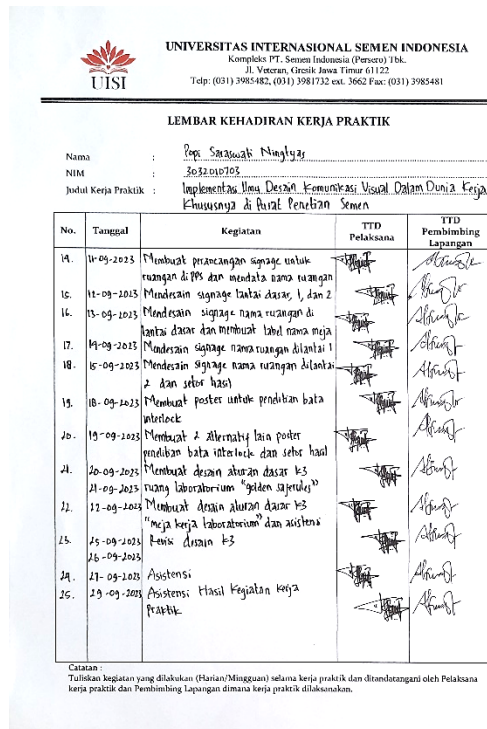 UNIVERSITAS INTERNASIONAL SEMEN INDONESIA
Kompleks PT. Semen Indonesia (Persero) Tbk.
Jl. Veteran, Gresik Jawa Timur 61122
Telp: (031) 3985482, (031) 3981732 ext. 3662 Fax: (031) 3985481
UISI
LEMBAR KEHADIRAN KERJA PRAKTIK
Nama : Popi Saraswati Ningtyas
NIM : 3032010703
Judul Kerja Praktik : Implementasi Ilmu Desain Komunikasi Visual Dalam Dunia Kerja
Khususnya di Pusat Penelitian Semen
No. Tanggal Kegiatan TTD Pelaksana TTD Pembimbing Lapangan
14. 11-09-2023 Membuat perancangan signage untuk
ruangan di PPS dan mendata nama ruangan
15. 12-09-2023 Mendesain signage lantai dasar, 1, dan 2
16. 13-09-2023 Mendesain signage nama ruangan di
lantai dasar dan membuat label nama meja
17. 14-09-2023 Mendesain signage nama ruangan dilantai 1
18. 15-09-2023 Mendesain signage nama ruangan dilantai
2 dan setor hasil
19. 18-09-2023 Membuat poster untuk penelitian bata
interlock
20. 19-09-2023 Membuat 2 alternatif lain poster
penelitian bata interlock dan setor hasil
21. 20-09-2023 Membuat desain aturan dasar k3
21-09-2023 ruang laboratorium "golden saferules"
22. 22-09-2023 Membuat desain aturan dasar k3
"meja kerja laboratorium" dan asistensi
23. 25-09-2023 Revisi desain k3
26-09-2023
24. 27-09-2023 Asistensi
25. 29-09-2023 Asistensi Hasil Kegiatan kerja
Praktik
Catatan :
Tuliskan kegiatan yang dilakukan (Harian/Mingguan) selama kerja praktik dan ditandatangani oleh Pelaksana
kerja praktik dan Pembimbing Lapangan dimana kerja praktik dilaksanakan.